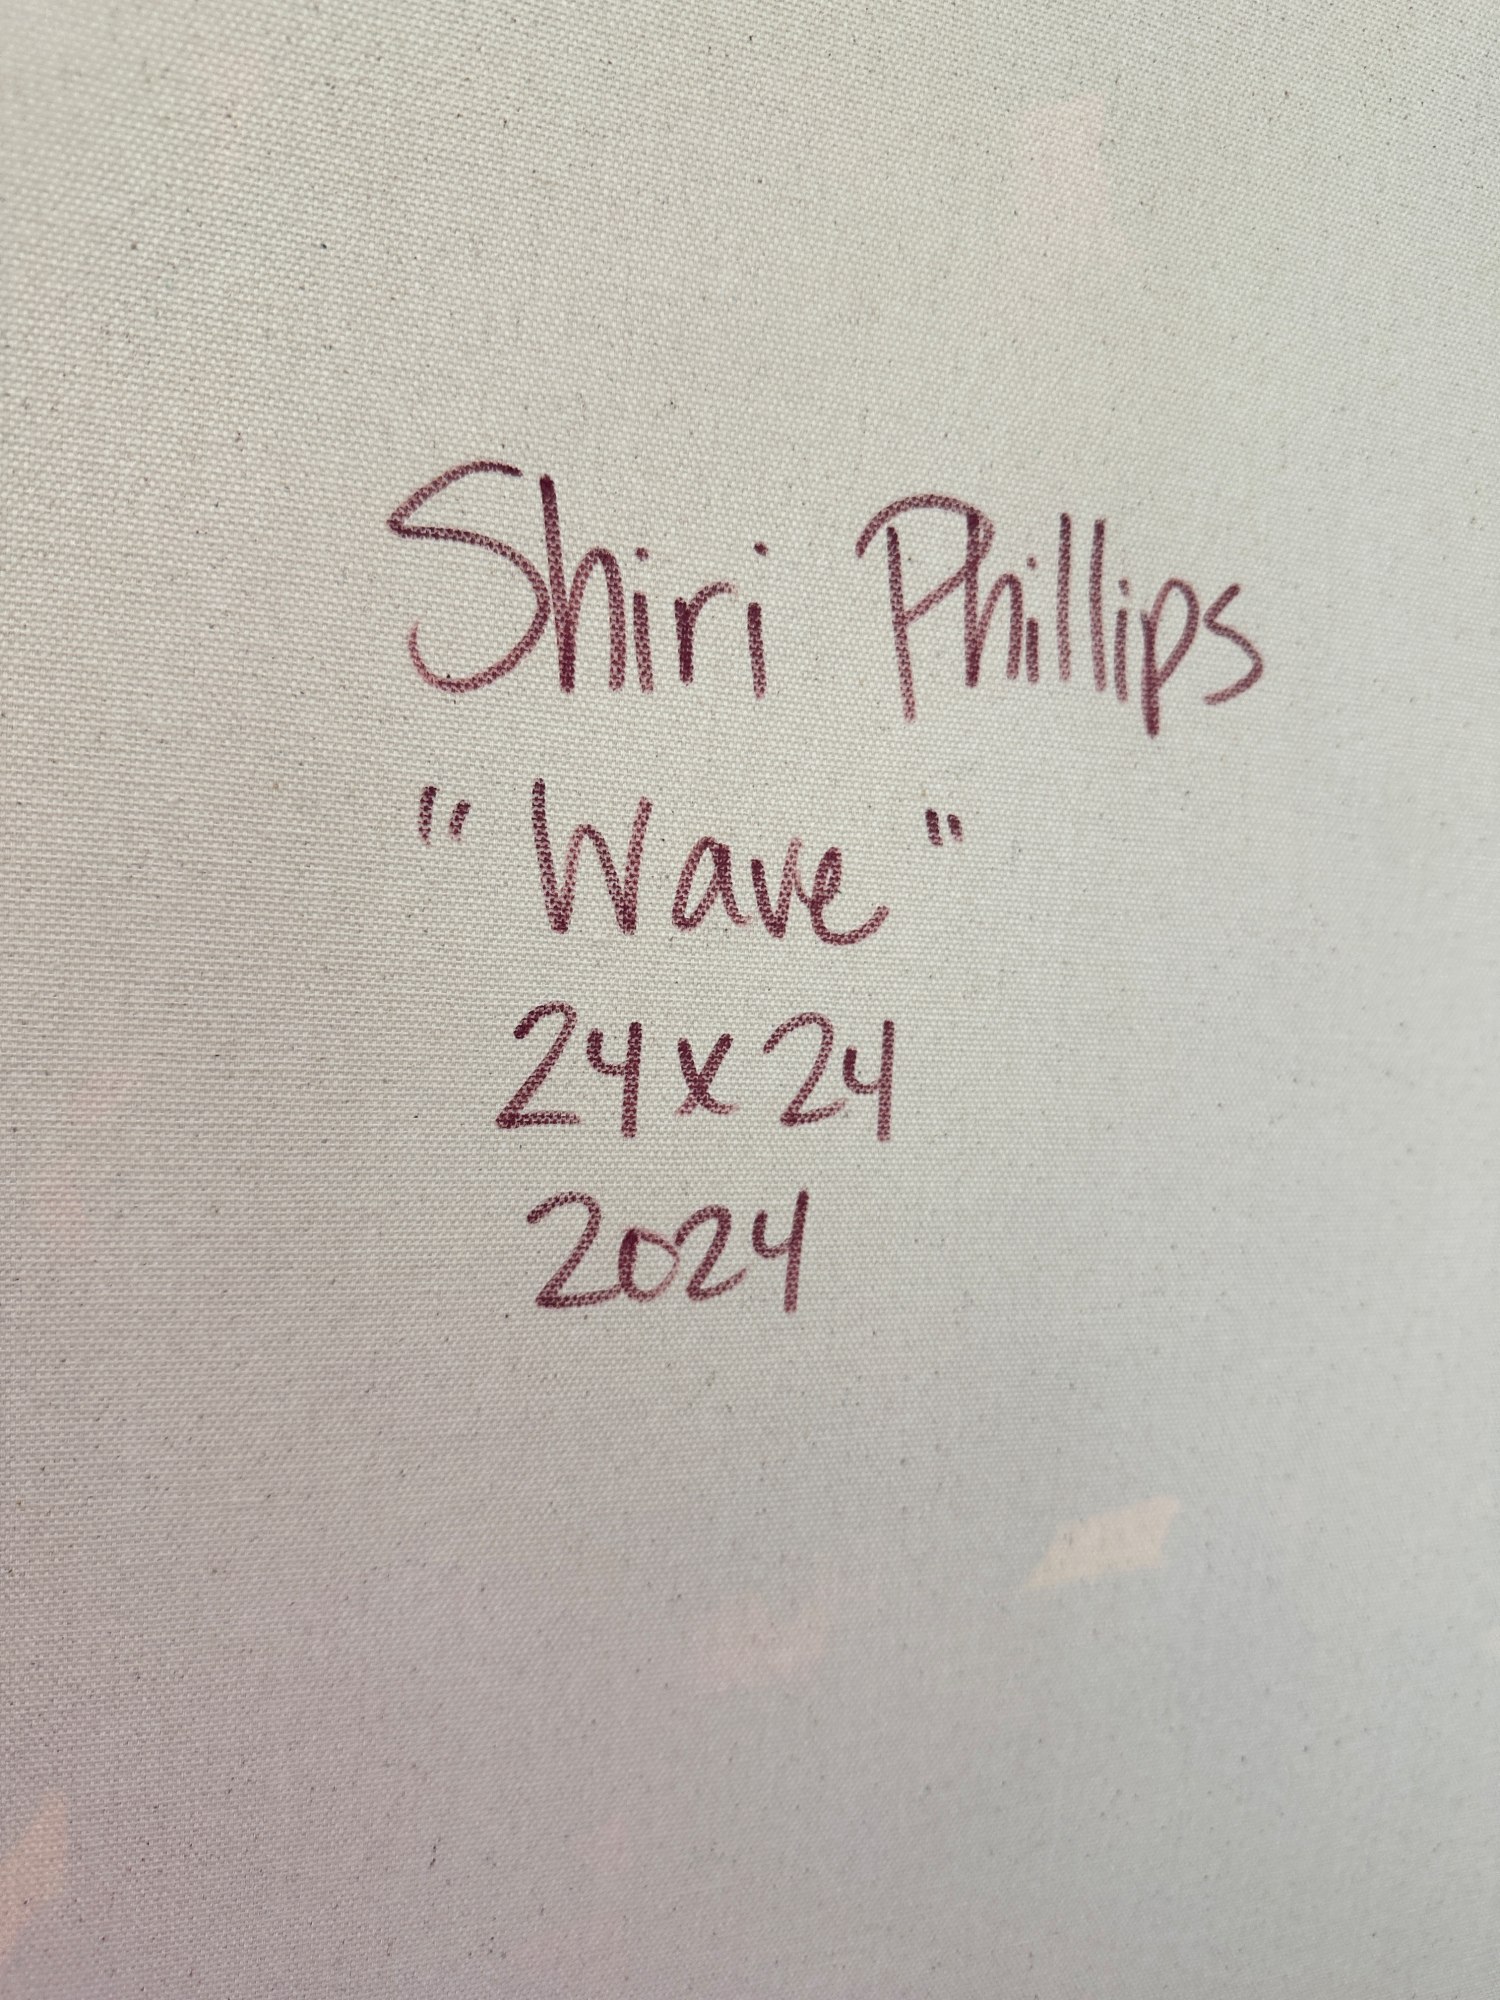 Shiri Phillips
"Wave"
24x24
2024